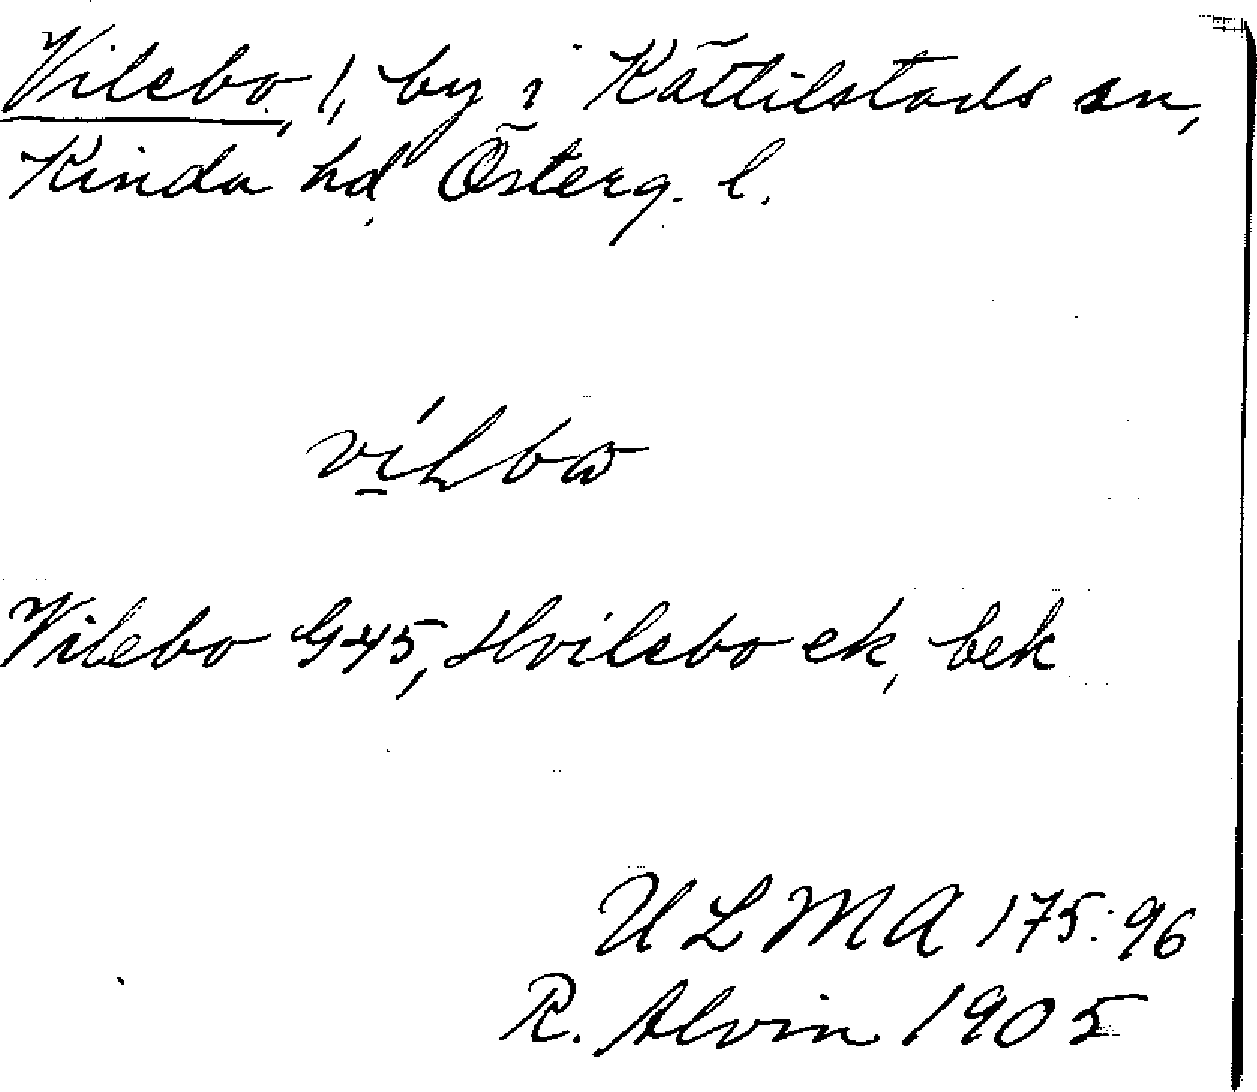 Vilebo, 1, by i Kättilstads sn,
Kinda hd, Österg. l.
Vilebo G45, Hvilebo ek, bek
ULMA 175:96
R. Alvin 1905